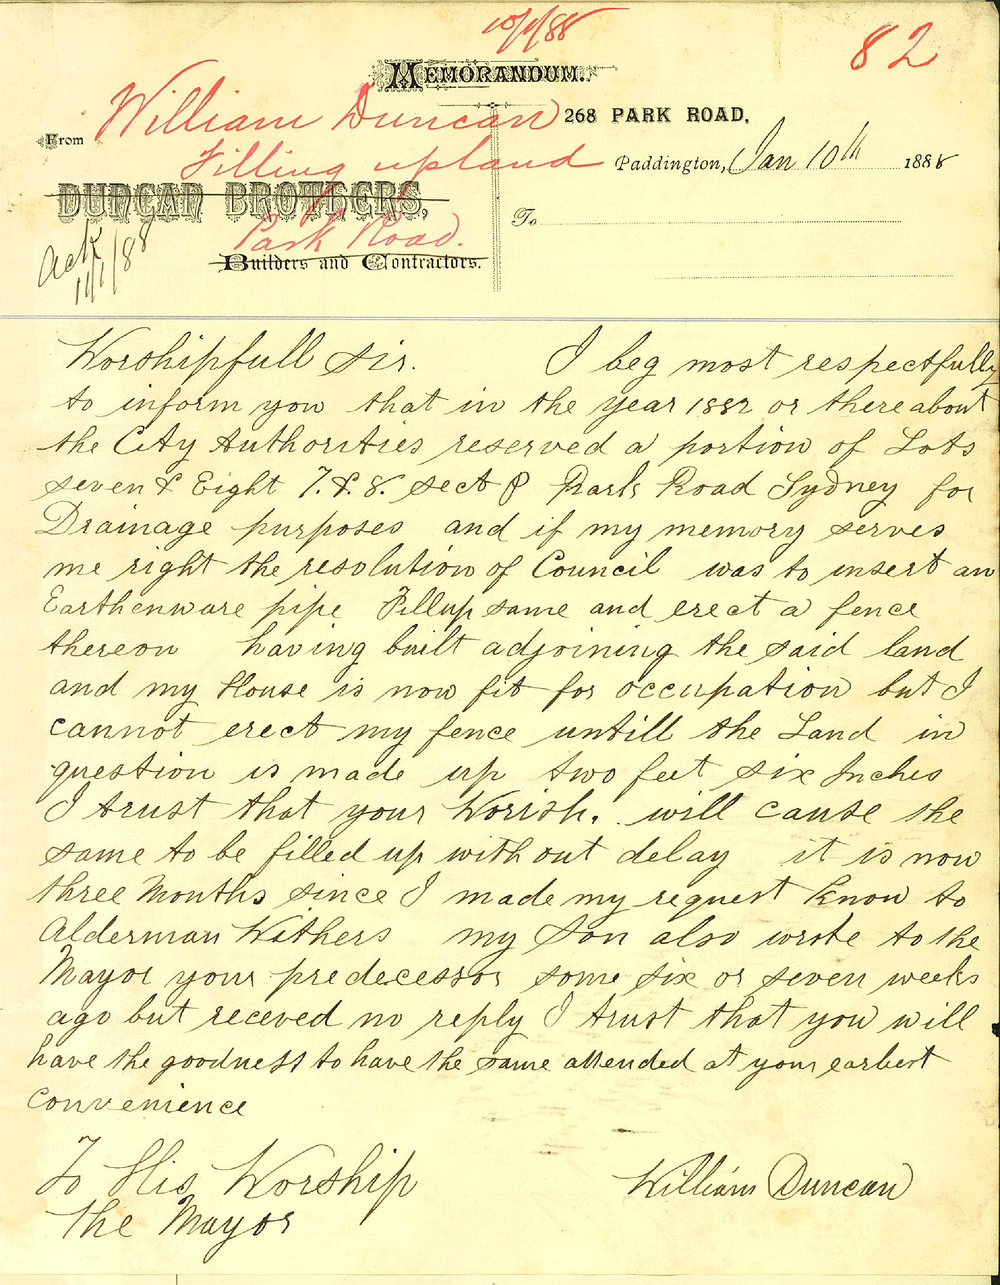 10/1/88
82
MEMORANDUM.
From William Duncan
268 PARK ROAD,
Filling up land
Paddington, Jan 10th 1888
DUNCAN BROTHERS,
To
Park Road.
Ack
11/1/88
Builders and Contractors.
Worshipfull Sir. I beg most respectfully
to inform you that in the year 1882 or there about
the City Authorities reserved a portion of Lots
seven & Eight 7. & 8. sect 8 Park Road Sydney for
Drainage purposes and if my memory serves
me right the resolution of Council was to insert an
Earthenware pipe Fill up same and erect a fence
thereon having built adjoining the said land
and my House is now fit for occupation but I
cannot erect my fence untill the Land in
question is made up two feet six Inches
I trust that your Worish. will cause the
same to be filled up with out delay it is now
three Months since I made my request know to
Alderman Withers my Son also wrote to the
Mayor your predecessor some six or seven weeks
ago but receved no reply I trust that you will
have the goodness to have the same attended at your earlest
convenience
To His Worship
William Duncan
The Mayor